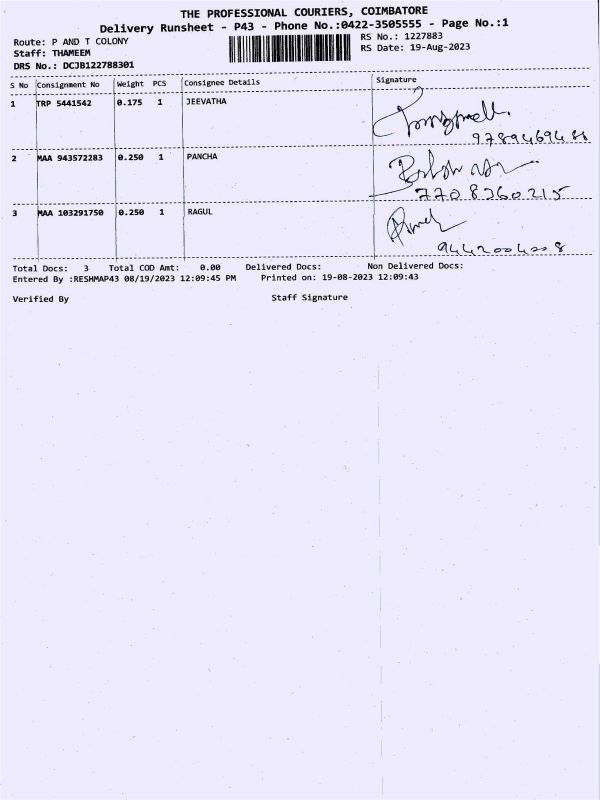 THE PROFESSIONAL COURIERS, COIMBATORE
Delivery Runsheet - P43 - Phone No.:0422-3505555 - Page No.:1
Route: P AND T COLONY RS No.: 1227883
Staff: THAMEEM RS Date: 19-Aug-2023
DRS No.: DCJB122788301
S No Consignment No Weight PCS Consignee Details Signature
1 TRP 5441542 0.175 1 JEEVATHA
2 MAA 943572283 0.250 1 PANCHA
7708360215
3 MAA 103291750 0.250 1 RAGUL
9442004008
Total Docs: 3 Total COD Amt: 0.00 Delivered Docs: Non Delivered Docs:
Entered By :RESHMAP43 08/19/2023 12:09:45 PM Printed on: 19-08-2023 12:09:43
Verified By Staff Signature